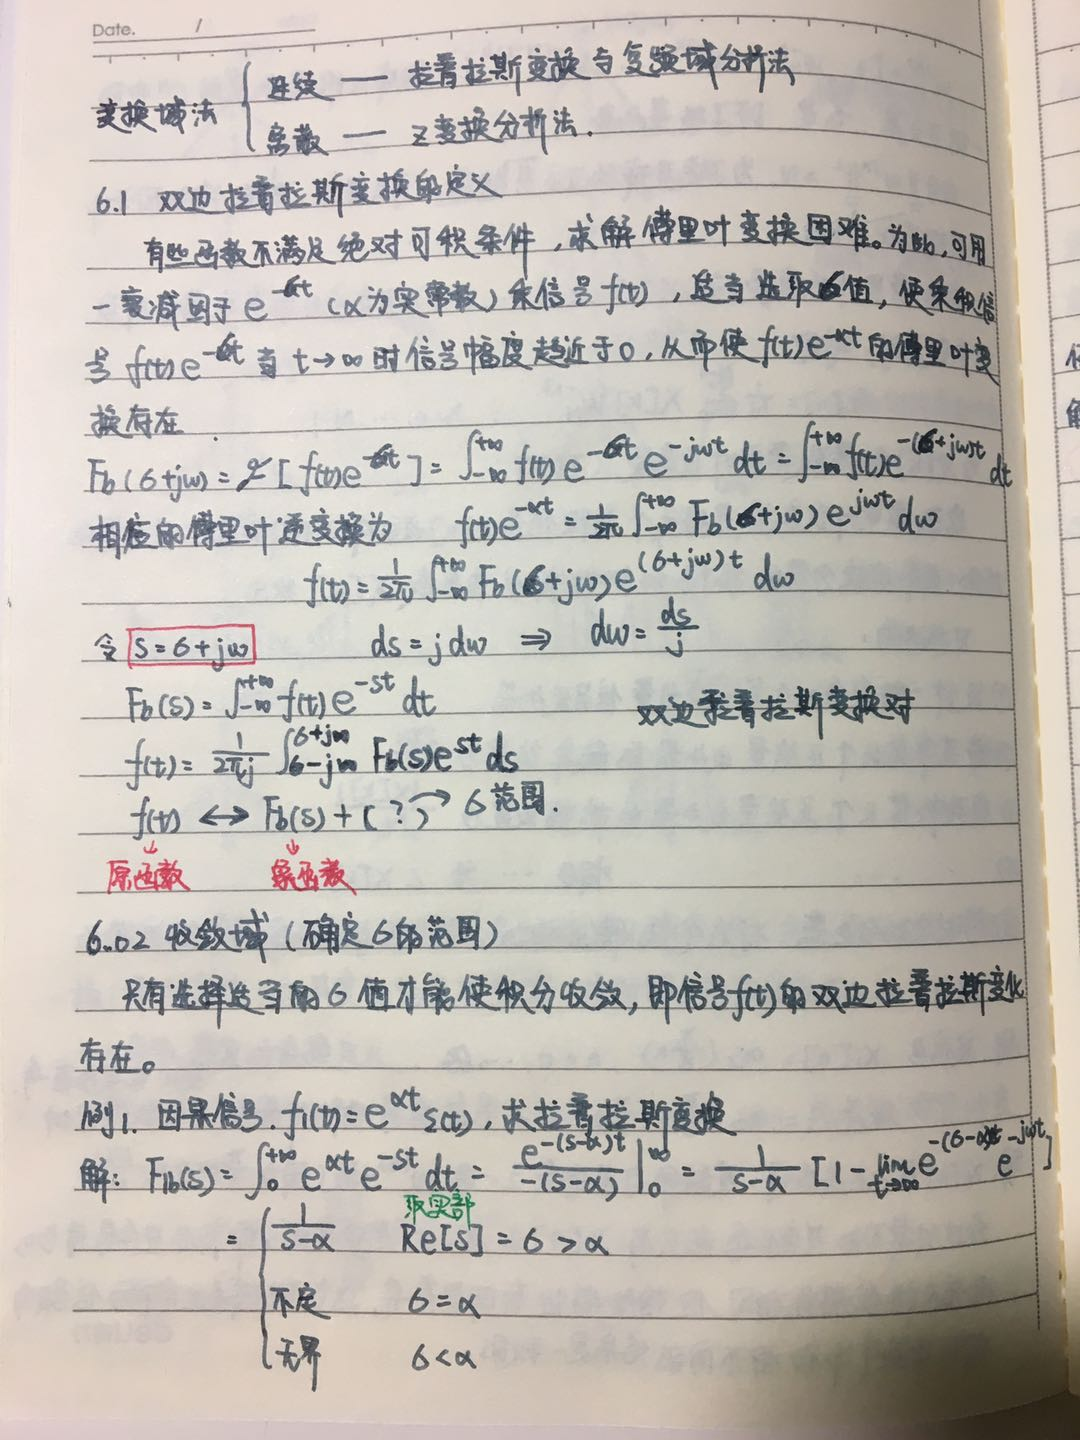 Date. /
变换域法 { 连续 —— 拉普拉斯变换与复频域分析法
离散 —— Z变换分析法.
6.1 双边拉普拉斯变换的定义
有些函数不满足绝对可积条件，求解傅里叶变换困难。为此，可用
一衰减因子 e^{-σt} (α为实常数) 乘信号 f(t)，适当选取σ值，使乘积信
号 f(t)e^{-σt} 当 t→∞ 时信号幅度趋近于0，从而使 f(t)e^{-αt} 的傅里叶变
换存在
F_b(σ+jω) = ℱ[f(t)e^{-σt}] = ∫_{-∞}^{+∞} f(t) e^{-σt} e^{-jωt} dt = ∫_{-∞}^{+∞} f(t)e^{-(σ+jω)t} dt
相应的傅里叶逆变换为 f(t)e^{-αt} = 1/2π ∫_{-∞}^{+∞} F_b(σ+jω) e^{jωt} dω
f(t) = 1/2π ∫_{-∞}^{+∞} F_b(σ+jω) e^{(σ+jω)t} dω
令 s = σ+jω ds = j dω ⇒ dω = ds/j
F_b(s) = ∫_{-∞}^{+∞} f(t) e^{-st} dt 双边拉普拉斯变换对
f(t) = 1/2πj ∫_{σ-j∞}^{σ+j∞} F_b(s) e^{st} ds
f(t) ↔ F_b(s) + (?) → σ范围.
↓ ↓
原函数 象函数
6.02 收敛域 (确定σ的范围)
只有选择适当的σ值才能使积分收敛，即信号f(t)的双边拉普拉斯变化
存在。
例1. 因果信号. f_1(t) = e^{αt} ε(t)，求拉普拉斯变换
解: F_{1b}(s) = ∫_0^{+∞} e^{αt} e^{-st} dt = e^{-(s-α)t}/-(s-α) |_0^∞ = 1/(s-α) [1 - lim_{t→∞} e^{-(σ-α)t} e^{-jωt}]
取实部
= { 1/(s-α) Re[s] = σ > α
不定 σ = α
无界 σ < α